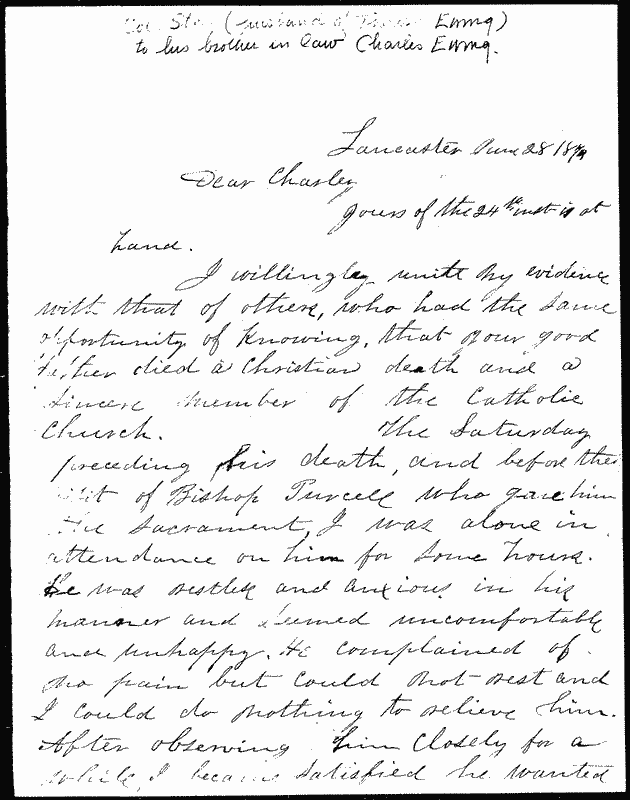 Col. (husband of Ewing)
to his brother in law Charles Ewing.
Lancaster June 28
Dear Charley
yours of the 24th inst is at
hand.
I willingly unite my evidence
with that of others, who had the same
opportunity of knowing, that your good
father died a Christian death and a
sincere member of the Catholic
Church. The Saturday
preceding his death, and before the
visit of Bishop Purcell who gave him
the sacrament, I was alone in
attendance on him for some hours.
He was restless and anxious in his
manner and seemed uncomfortable
and unhappy. He complained of
no pain but could not rest and
I could do nothing to relieve him.
After observing him closely for a
while, I became satisfied he wanted